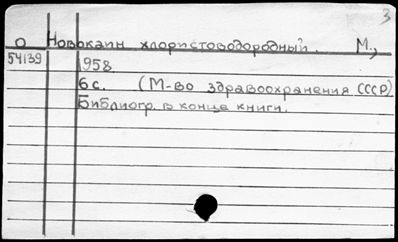 3
О Новокаин хлористоводородный. М.,
54139 1958.
6с. (М-во здравоохранения СССР)
Библиогр. в конце книги.